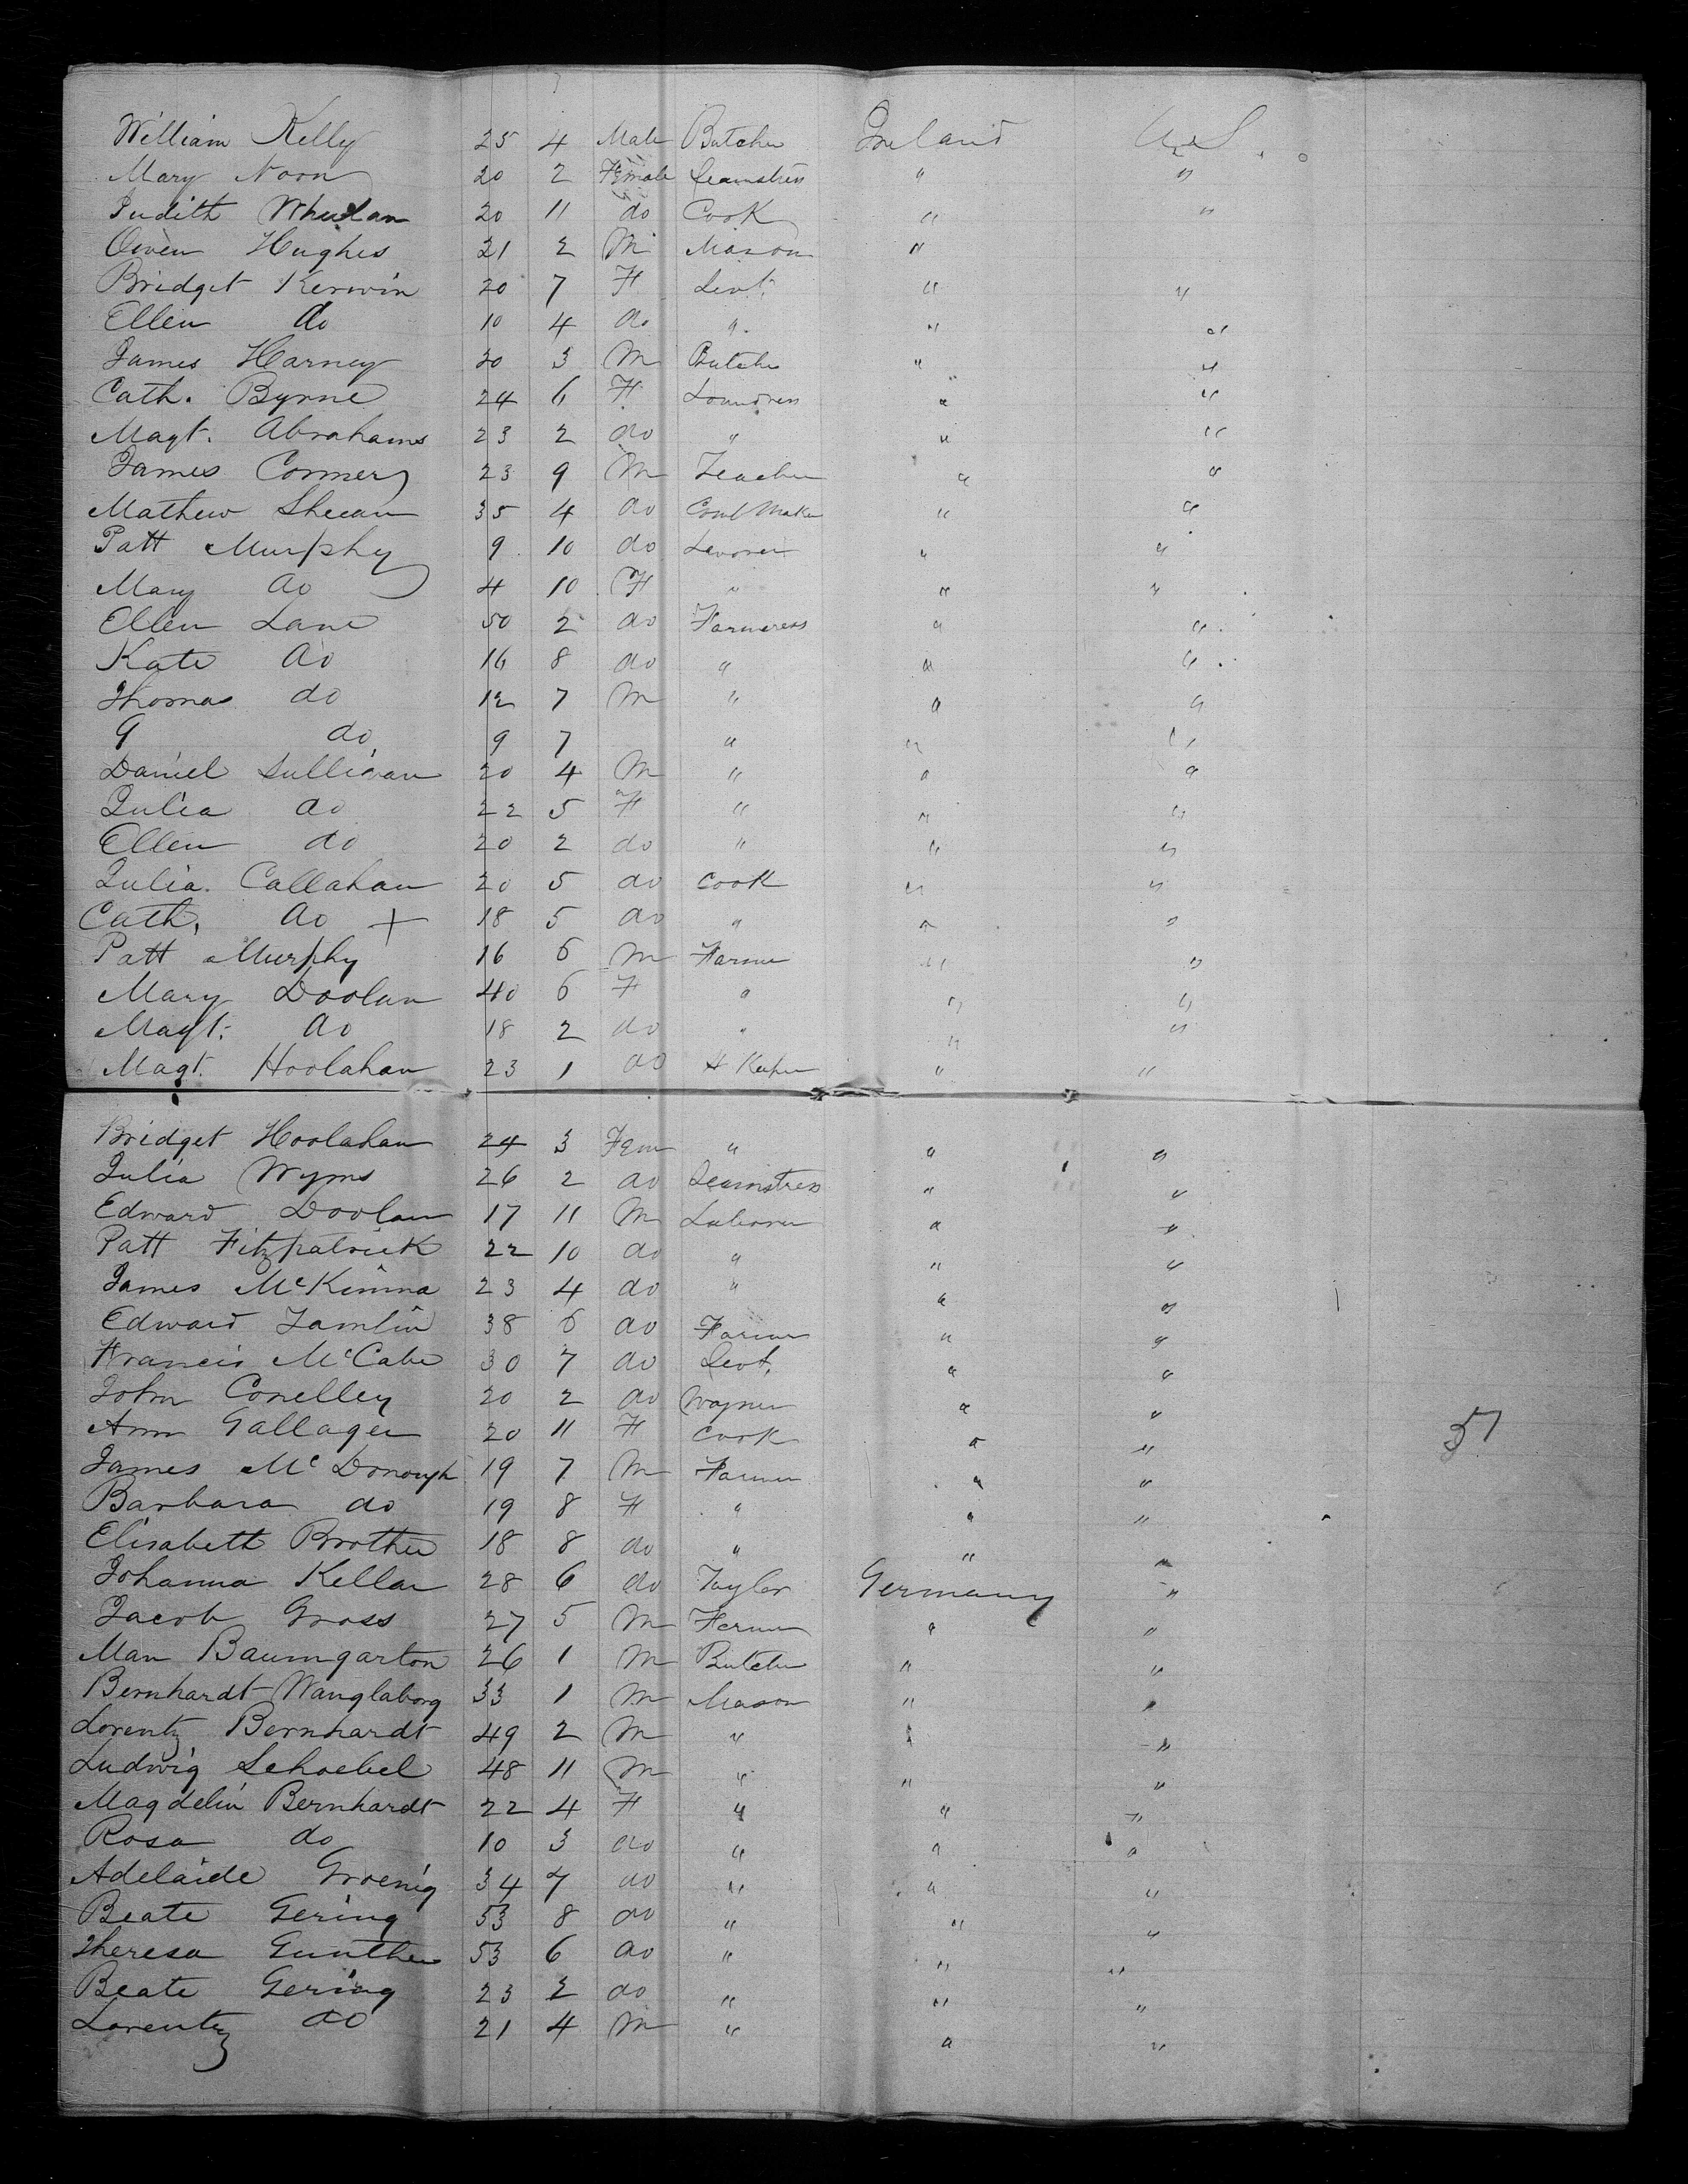 William Kelly 25 4 Male Butcher Ireland U.S.
Mary Noon 20 2 Female Seamstress " "
Judith Whelan 20 11 do Cook " "
Owen Hughes 21 2 M Mason "
Bridget Kerwin 20 7 F Sevt. " "
Ellen do 10 4 do " " "
James Harney 20 3 M Butcher " "
Cath. Byrne 24 6 F Laundress " "
Magt. Abrahams 23 2 do " " "
James Conners 23 9 M Teacher " "
Mathew Sheean 35 4 do Maker " "
Patt Murphy 9 10 do " "
Mary do 4 10 F " " "
Ellen Lane 50 2 do Farmeress " "
Kate do 16 8 do " " "
Thomas do 12 7 M " " "
G do 9 7 " " "
Daniel Sullivan 20 4 M " " "
Julia do 22 5 F " " "
Ellen do 20 2 do " " "
Julia. Callahan 20 5 do Cook " "
Cath. do + 18 5 do " " "
Patt Murphy 16 6 M Farmer " "
Mary Doolan 40 6 F " " "
Magt. do 18 2 do " " "
Magt. Hoolahan 23 1 do H Keeper " "
Bridget Hoolahan 24 3 Fem " " "
Julia Wyms 26 2 do Seamstress " "
Edward Doolan 17 11 M Laborer " "
Patt Fitzpatrick 22 10 do " " "
James McKinna 23 4 do " " "
Edward Tamlin 38 6 do Farmer " "
Francis McCabe 30 7 do Sevt. " "
John Conelley 20 2 do Wagner " "
Ann Gallager 20 11 F Cook " " 51
James McDonough 19 7 M Farmer " "
Barbara do 19 8 F " " "
Elisabett Brother 18 8 do " " "
Johanna Kellar 28 6 do Taylor Germany "
Jacob Gross 27 5 M Farmer " "
Man Baumgarton 26 1 M Butcher " "
Bernhardt Wanglaborg 33 1 M Mason " "
Lorentz Bernhardt 49 2 M " " "
Ludwig Schoebel 48 11 M " " "
Magdelin Bernhardt 22 4 F " " "
Rosa do 10 3 do " " "
Adelaide Groenig 34 7 do " " "
Beate Gering 53 8 do " " "
Theresa Gunther 53 6 do " " "
Beate Gering 23 2 do " " "
Lorentz do 21 4 M " " "